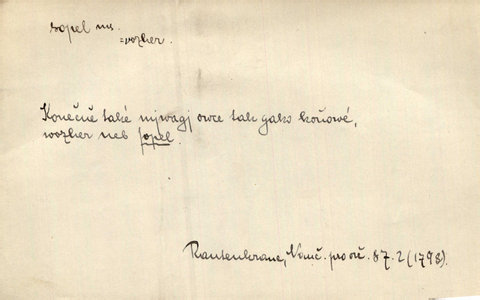 sopel m.
= vozher.
Konečně také mjwagj owce tak gako koňowé,
wozher neb sopel.
Rautenkranc, Nauč. pro ovč. 87. 2 (1798).